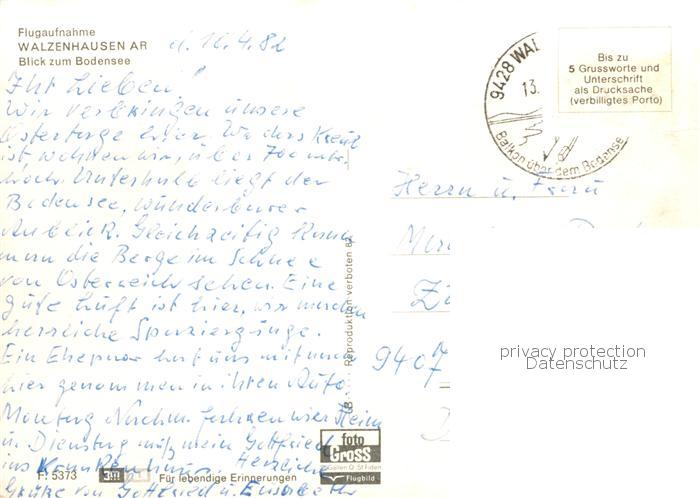 Flugaufnahme
WALZENHAUSEN AR
Blick zum Bodensee
d. 10.4.82
Ihr Lieben!
Wir verbringen unsere
Ostertage hier. Wo das Kreuz
ist wohnen wir, über 700 mtr.
hoch. Unterhalb liegt der
Bodensee, wunderbarer
Anblick. Gleichzeitig kann
man die Berge im Schnee
von Österreich sehen. Eine
gute Luft ist hier, wir machen
herrliche Spaziergänge.
Ein Ehepaar hat uns mit nach
hier genommen in ihren Auto.
Montag Nachm. fahren wir Heim
u. Dienstag muß mein Gottfried
ins Krankenhaus. Herzliche
Grüße von Gottfried u.
F. 5373
Für lebendige Erinnerungen
Reproduktion verboten
foto
GROSS
St Gallen O. St Fiden
Flugbild
9428 WAL
13.
Balkon über dem Bodense
Bis zu
5 Grussworte und
Unterschrift
als Drucksache
(verbilligtes Porto)
Herrn u. Frau
9407
privacy protection
Datenschutz